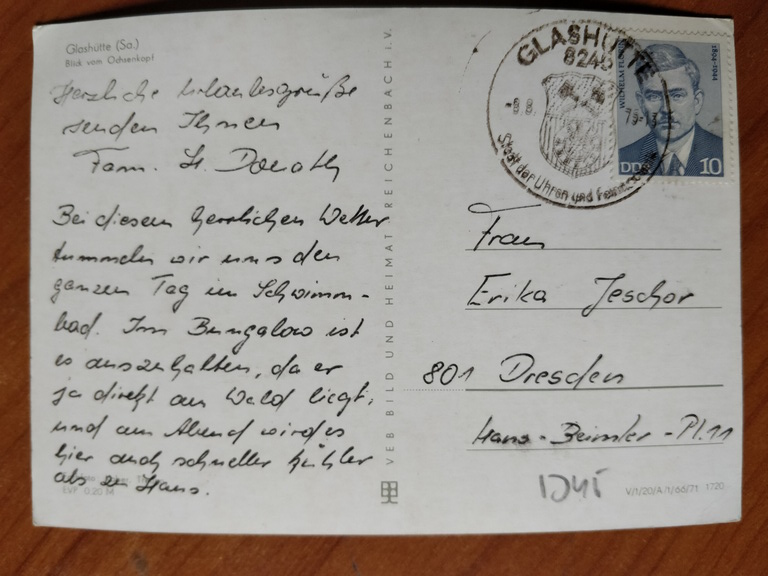 Glashütte (Sa.)
Blick vom Ochsenkopf
Herzliche Urlaubsgrüße
senden Ihnen
Fam. H. Donath
Bei diesem herrlichen Wetter
tummeln wir uns den
ganzen Tag im Schwimm-
bad. Im Bungalow ist
es auszuhalten, da er
ja direkt am Wald liegt,
und am Abend wird es
hier auch schneller kühler
als zu Haus.
EVP 0,20 M
VEB BILD UND HEIMAT REICHENBACH i.V.
GLASHÜTTE
8245
-8.8. 75-13
Stadt der Uhren und
WILHELM
1804-1944
DDR 10
Frau
Erika Jeschor
801 Dresden
Hans-Beimler-Pl. 11
V/1/20/A/1/66/71 1720